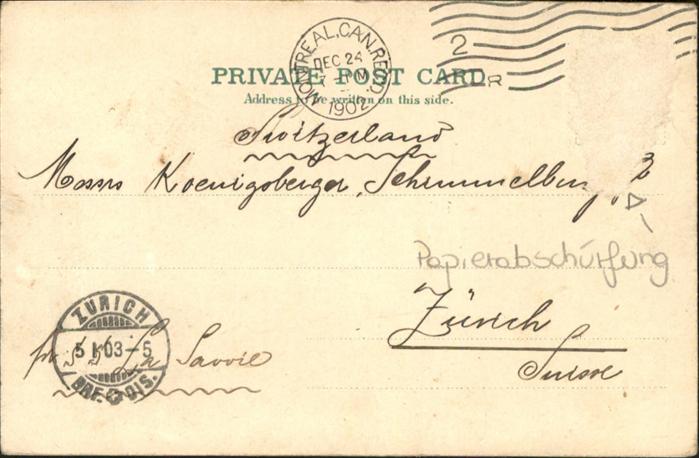 MONTREAL, CAN. REC'D.
DEC 24
7 PM
1902
2
R
PRIVATE POST CARD.
Address to be written on this side.
Switzerland
Messrs Koenigsberger, Schimmelburg
Papierabschürfung
Zürich
Suisse
ZÜRICH
5 I 03-5
BRF. DIS.
per SS La Savoie